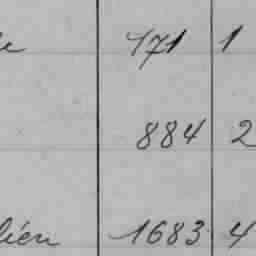 171 1
884 2
1683 4